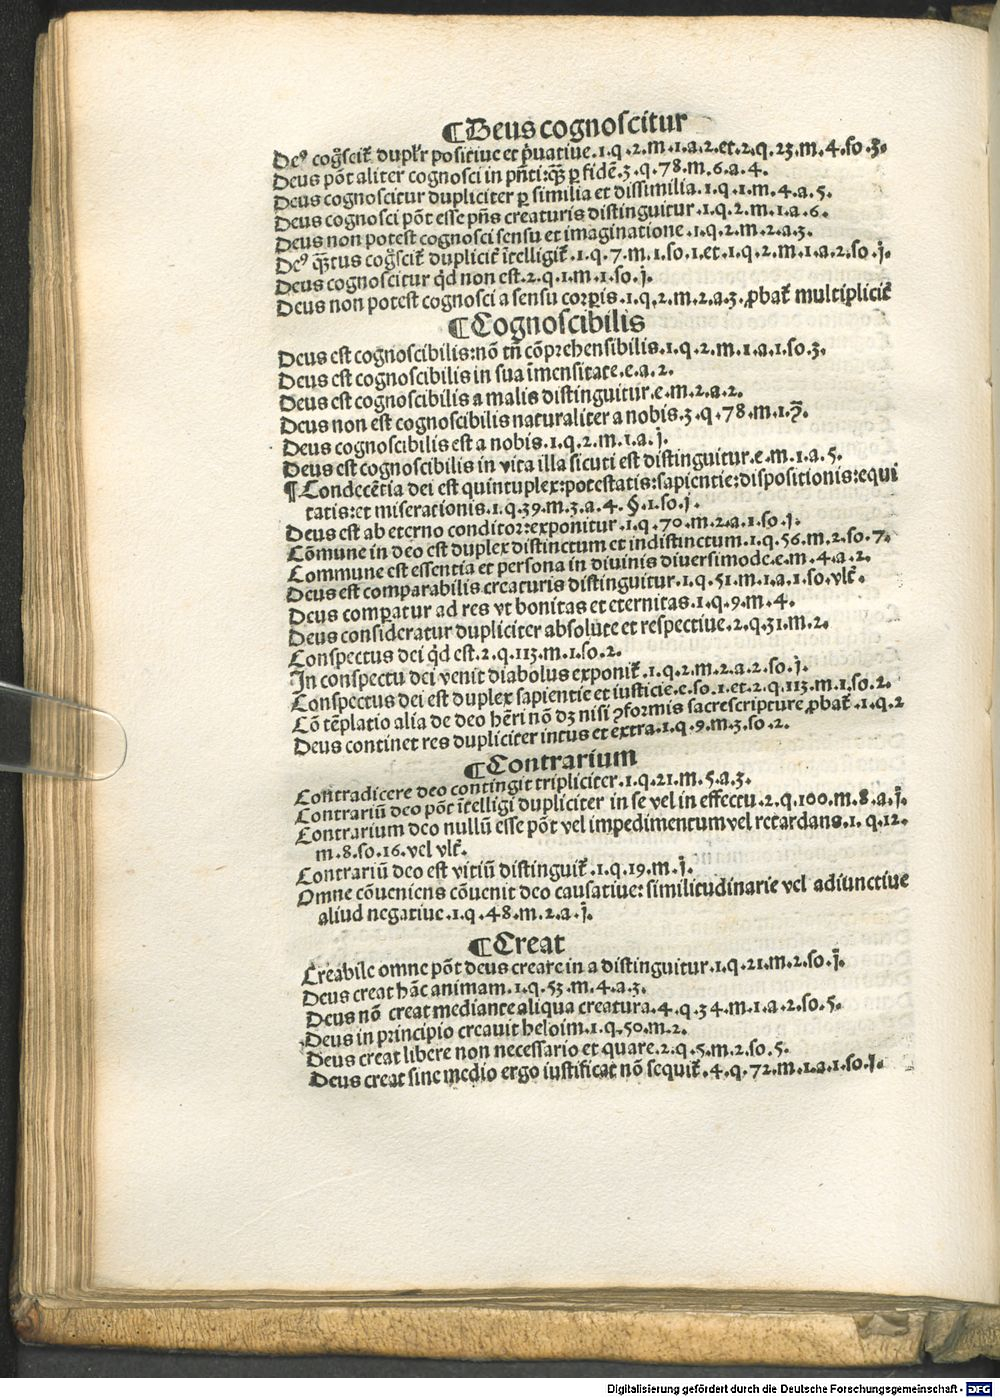 ¶Deus cognoscitur
Deꝰ cog̃scit᷑ duplr̃ positiue et p̃uatiue.1.q.2.m.1.a.2.et.2.q.23.m.4.so.3.
Deus põt aliter cognosci in pñti:qꝫ̃ ꝑ fidẽ.3.q.78.m.6.a.4.
Deus cognoscitur dupliciter ꝑ similia et dissimilia.1.q.1.m.4.a.5.
Deus cognosci põt esse pñs creaturis distinguitur.1.q.2.m.1.a.6.
Deus non potest cognosci sensu et imaginatione.1.q.2.m.2.a.3.
Deꝰ qꝫ̃tus cog̃scit᷑ duplicit᷑ ĩtelligit᷑.1.q.7.m.1.so.1.et.1.q.2.m.1.a.2.so.j.
Deus cognoscitur q̃d non est.2.q.1.m.1.so.j.
Deus non potest cognosci a sensu corꝑis.1.q.2.m.2.a.3.ꝓbat᷑ multiplicit᷑
¶Cognoscibilis
Deus est cognoscibilis:nõ tñ cõprehensibilis.1.q.2.m.1.a.1.so.3.
Deus est cognoscibilis in sua ĩmensitate.e.a.2.
Deus est cognoscibilis a malis distinguitur.e.m.2.a.2.
Deus non est cognoscibilis naturaliter a nobis.3.q.78.m.1.
Deus cognoscibilis est a nobis.1.q.2.m.1.a.j.
Deus est cognoscibilis in vita illa sicuti est distinguitur.e.m.1.a.5.
¶Condecẽtia dei est quintuplex:potestatis:sapientie:dispositionis:equi
tatis:et miserationis.1.q.39.m.3.a.4.§.1.so.j.
Deus est ab eterno conditor:exponitur.1.q.70.m.2.a.1.so.j.
Cõmune in deo est duplex distinctum et indistinctum.1.q.56.m.2.so.7.
Commune est essentia et persona in diuinis diuersimode.e.m.4.a.2.
Deus est comparabilis creaturis distinguitur.1.q.51.m.1.a.1.so.vlt᷑.
Deus comꝑatur ad res vt bonitas et eternitas.1.q.9.m.4.
Deus consideratur dupliciter absolute et respectiue.2.q.31.m.2.
Conspectus dei q̃d est.2.q.113.m.1.so.2.
In conspectu dei venit diabolus exponit᷑.1.q.2.m.2.a.2.so.j.
Conspectus dei est duplex sapientie et iusticie.e.so.1.et.2.q.113.m.1.so.2.
Cõ tẽplatio alia de deo hẽri nõ dꝫ nisi ꝯformis sacrescripture ꝓbat᷑.1.q.2
Deus continet res dupliciter intus et extra.1.q.9.m.3.so.2.
¶Contrarium
Contradicere deo contingit tripliciter.1.q.21.m.5.a.3.
Contrariũ deo põt ĩtelligi dupliciter in se vel in effectu.2.q.100.m.8.a.j.
Contrarium deo nullũ esse põt vel impedimentum vel retardans.1.q.12.
m.8.so.16.vel vlt᷑.
Contrariũ deo est vitiũ distinguit᷑.1.q.19.m.j.
Omne cõueniens cõuenit deo causatiue:similitudinarie vel adiunctiue
aliud negatiue.1.q.48.m.2.a.j.
¶Creat
Creabile omne põt deus creare in a distinguitur.1.q.21.m.2.so.j.
Deus creat hãc animam.1.q.53.m.4.a.3.
Deus nõ creat mediante aliqua creatura.4.q.34.m.1.a.2.so.5.
Deus in principio creauit heloim.1.q.50.m.2.
Deus creat libere non necessario et quare.2.q.5.m.2.so.5.
Deus creat sine medio ergo iustificat nõ sequit᷑.4.q.72.m.1.a.1.so.j.
Digitalisierung gefördert durch die Deutsche Forschungsgemeinschaft - DFG